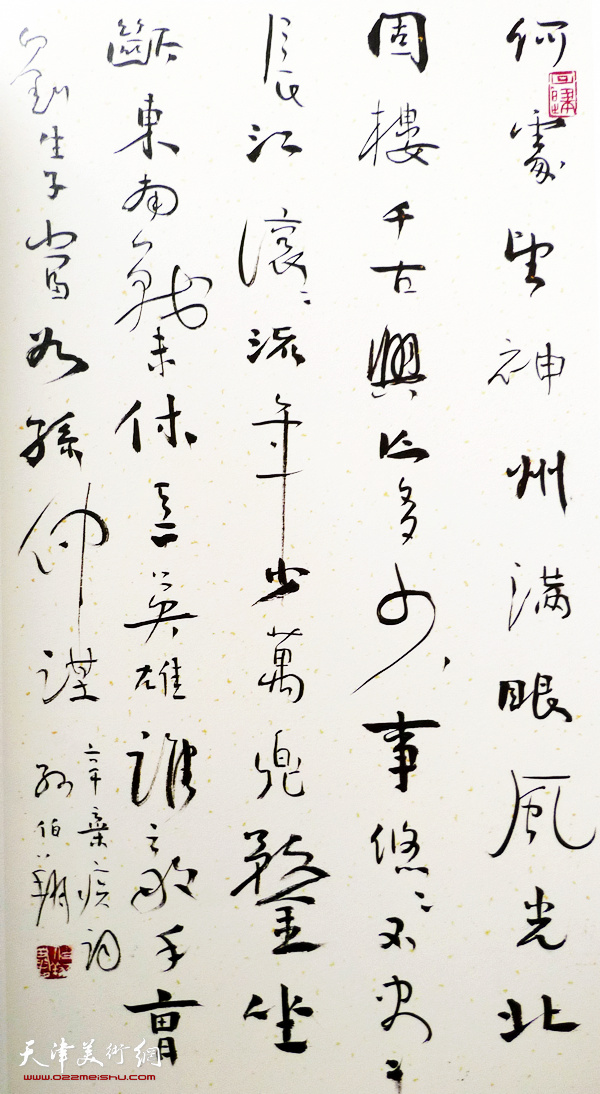 何處望神州滿眼風光北
固樓千古興亡多少事悠々不尽
長江滾々流年少萬兜鍪坐
斷東南戰未休天下英雄誰敵手曹
劉生子當如孫仲謀
辛棄疾詞
孫伯翔
天津美術網
www.022meishu.com